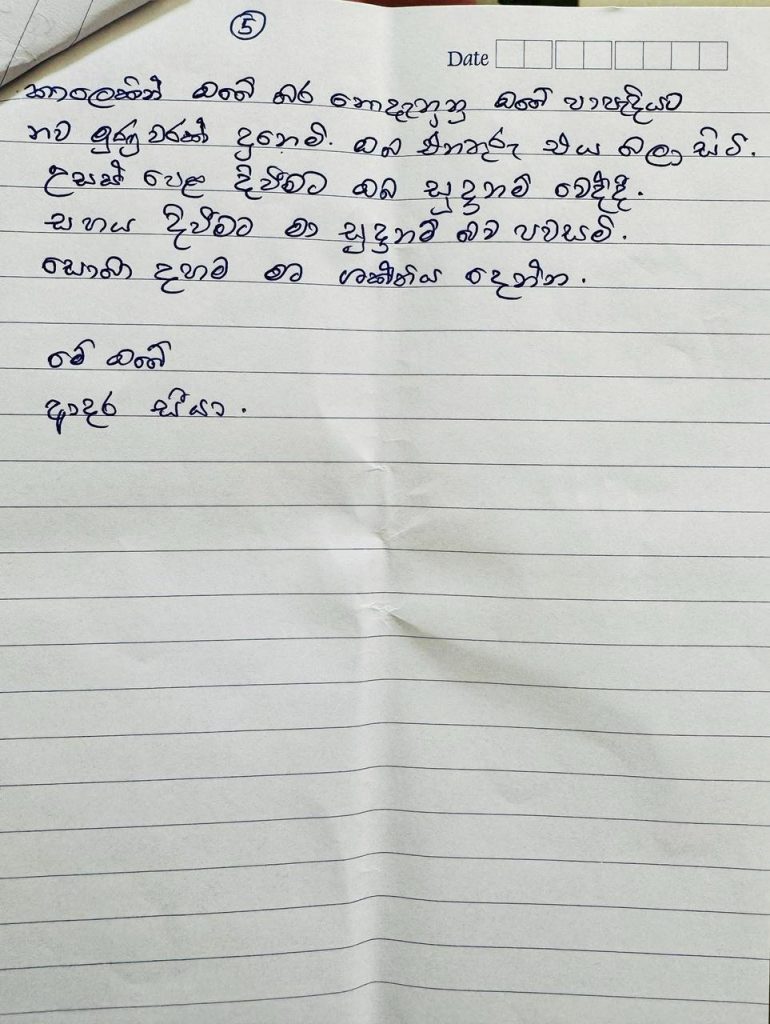 5
Date
කාලෙකින් ඔබේ බර නොදැනුනු ඔබේ පාපැදියට
නව මුණුවරක් දුනෙමි. ඔබ එනතුරු එය බලා සිටී.
උසස් පෙළ දිවීමට ඔබ සූදානම් වෙද්දී.
සහය දිවීමට මා සූදානම් බව පවසමි.
සොබා දහම මට ශක්තිය දෙන්න.
මේ ඔබේ
ආදර සීයා.